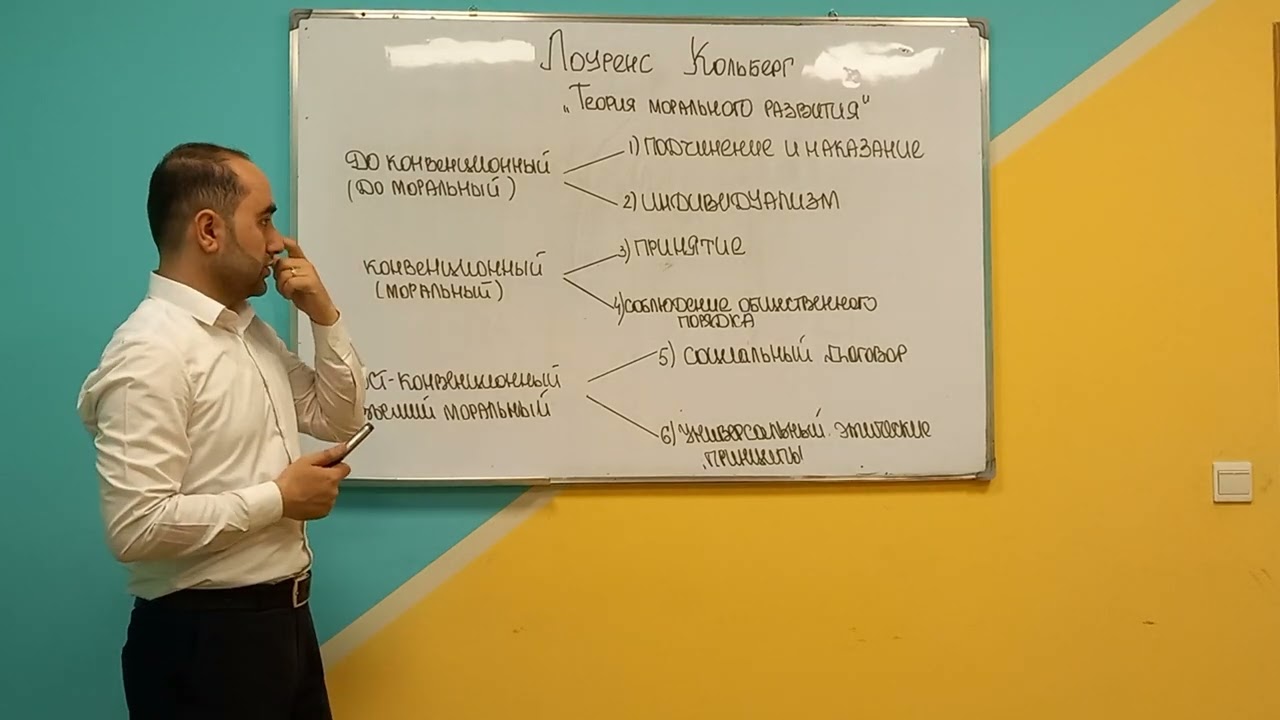 Лоуренс Кольберг
„Теория морального развития"
До конвенционный
(До моральный)
1) Подчинение и наказание
2) Индивидуализм
конвенционный
(моральный)
3) Принятие
4) соблюдение общественного
порядка
ст-конвенционный
моральный
5) Социальный договор
6) Универсальный этические
принципы